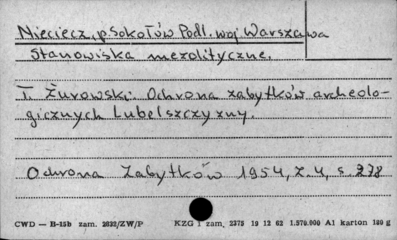 Nieciecz, p. Sokołów Podl. woj. Warszawa
Stanowiska mezolityczne.
T. Żurowski: Ochrona zabytków archeolo-
gicznych Lubelszczyzny.
Ochrona Zabytków 1954, z. 4, s. 278
CWD — B-15b zam. 2832/ZW/P KZG 1 zam. 2375 19 12 62 1.570.000 A1 karton 180 g